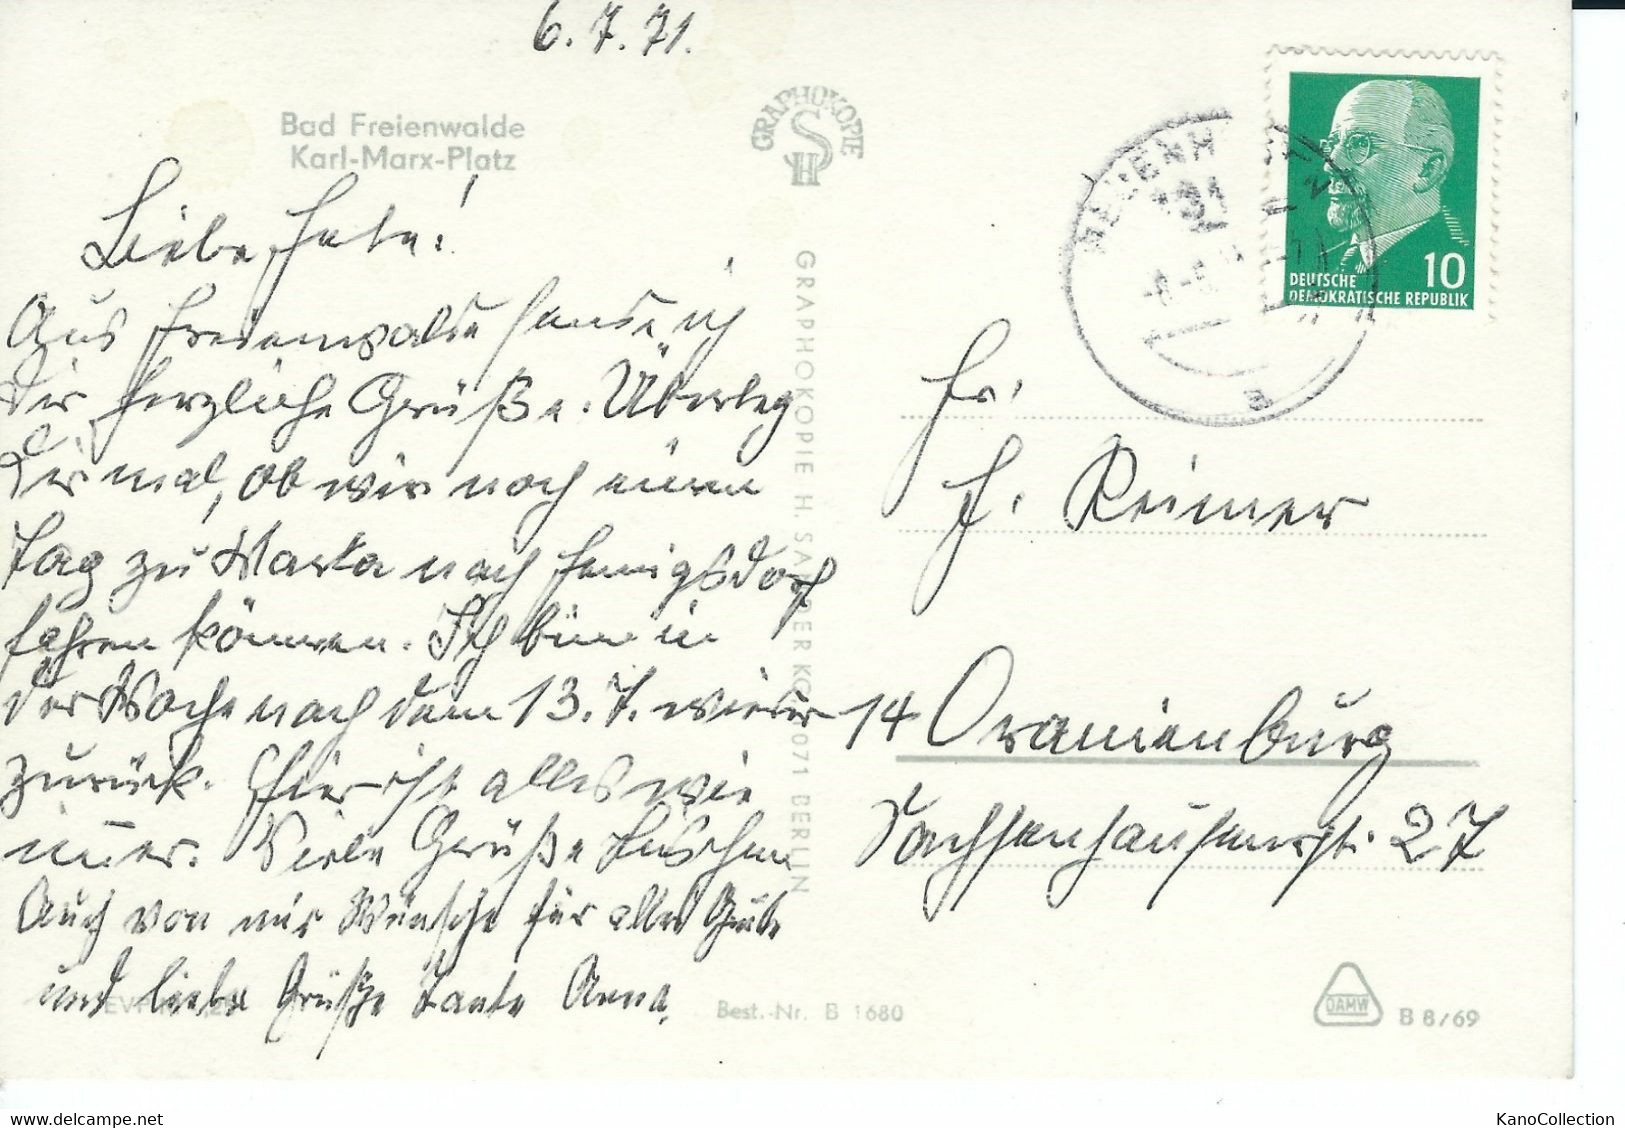 6.7.71.
Bad Freienwalde
Karl-Marx-Platz
GRAPHOKOPIE
SH
Liebe Hete!
Aus Freienwalde sende ich
Dir herzliche Grüße. Überleg
Dir mal, ob wir noch einen
Tag zu Marta nach Hennigsdorf
fahren können. Ich bin in
der Woche nach dem 13.7. wieder
zurück. Hier ist alles wie
immer. Viele Grüße
Auch von mir Wünsche für alles Gute
und liebe Grüße Tante Anna.
GRAPHOKOPIE H. SANDER KG 1071 BERLIN
DEUTSCHE
DEMOKRATISCHE REPUBLIK
10
Fr.
H. Reimer
14 Oranienburg
Sachsenhausenerstr. 27
Best.-Nr. B 1680
DAMW
B 8/69
www.delcampe.net
KanoCollection